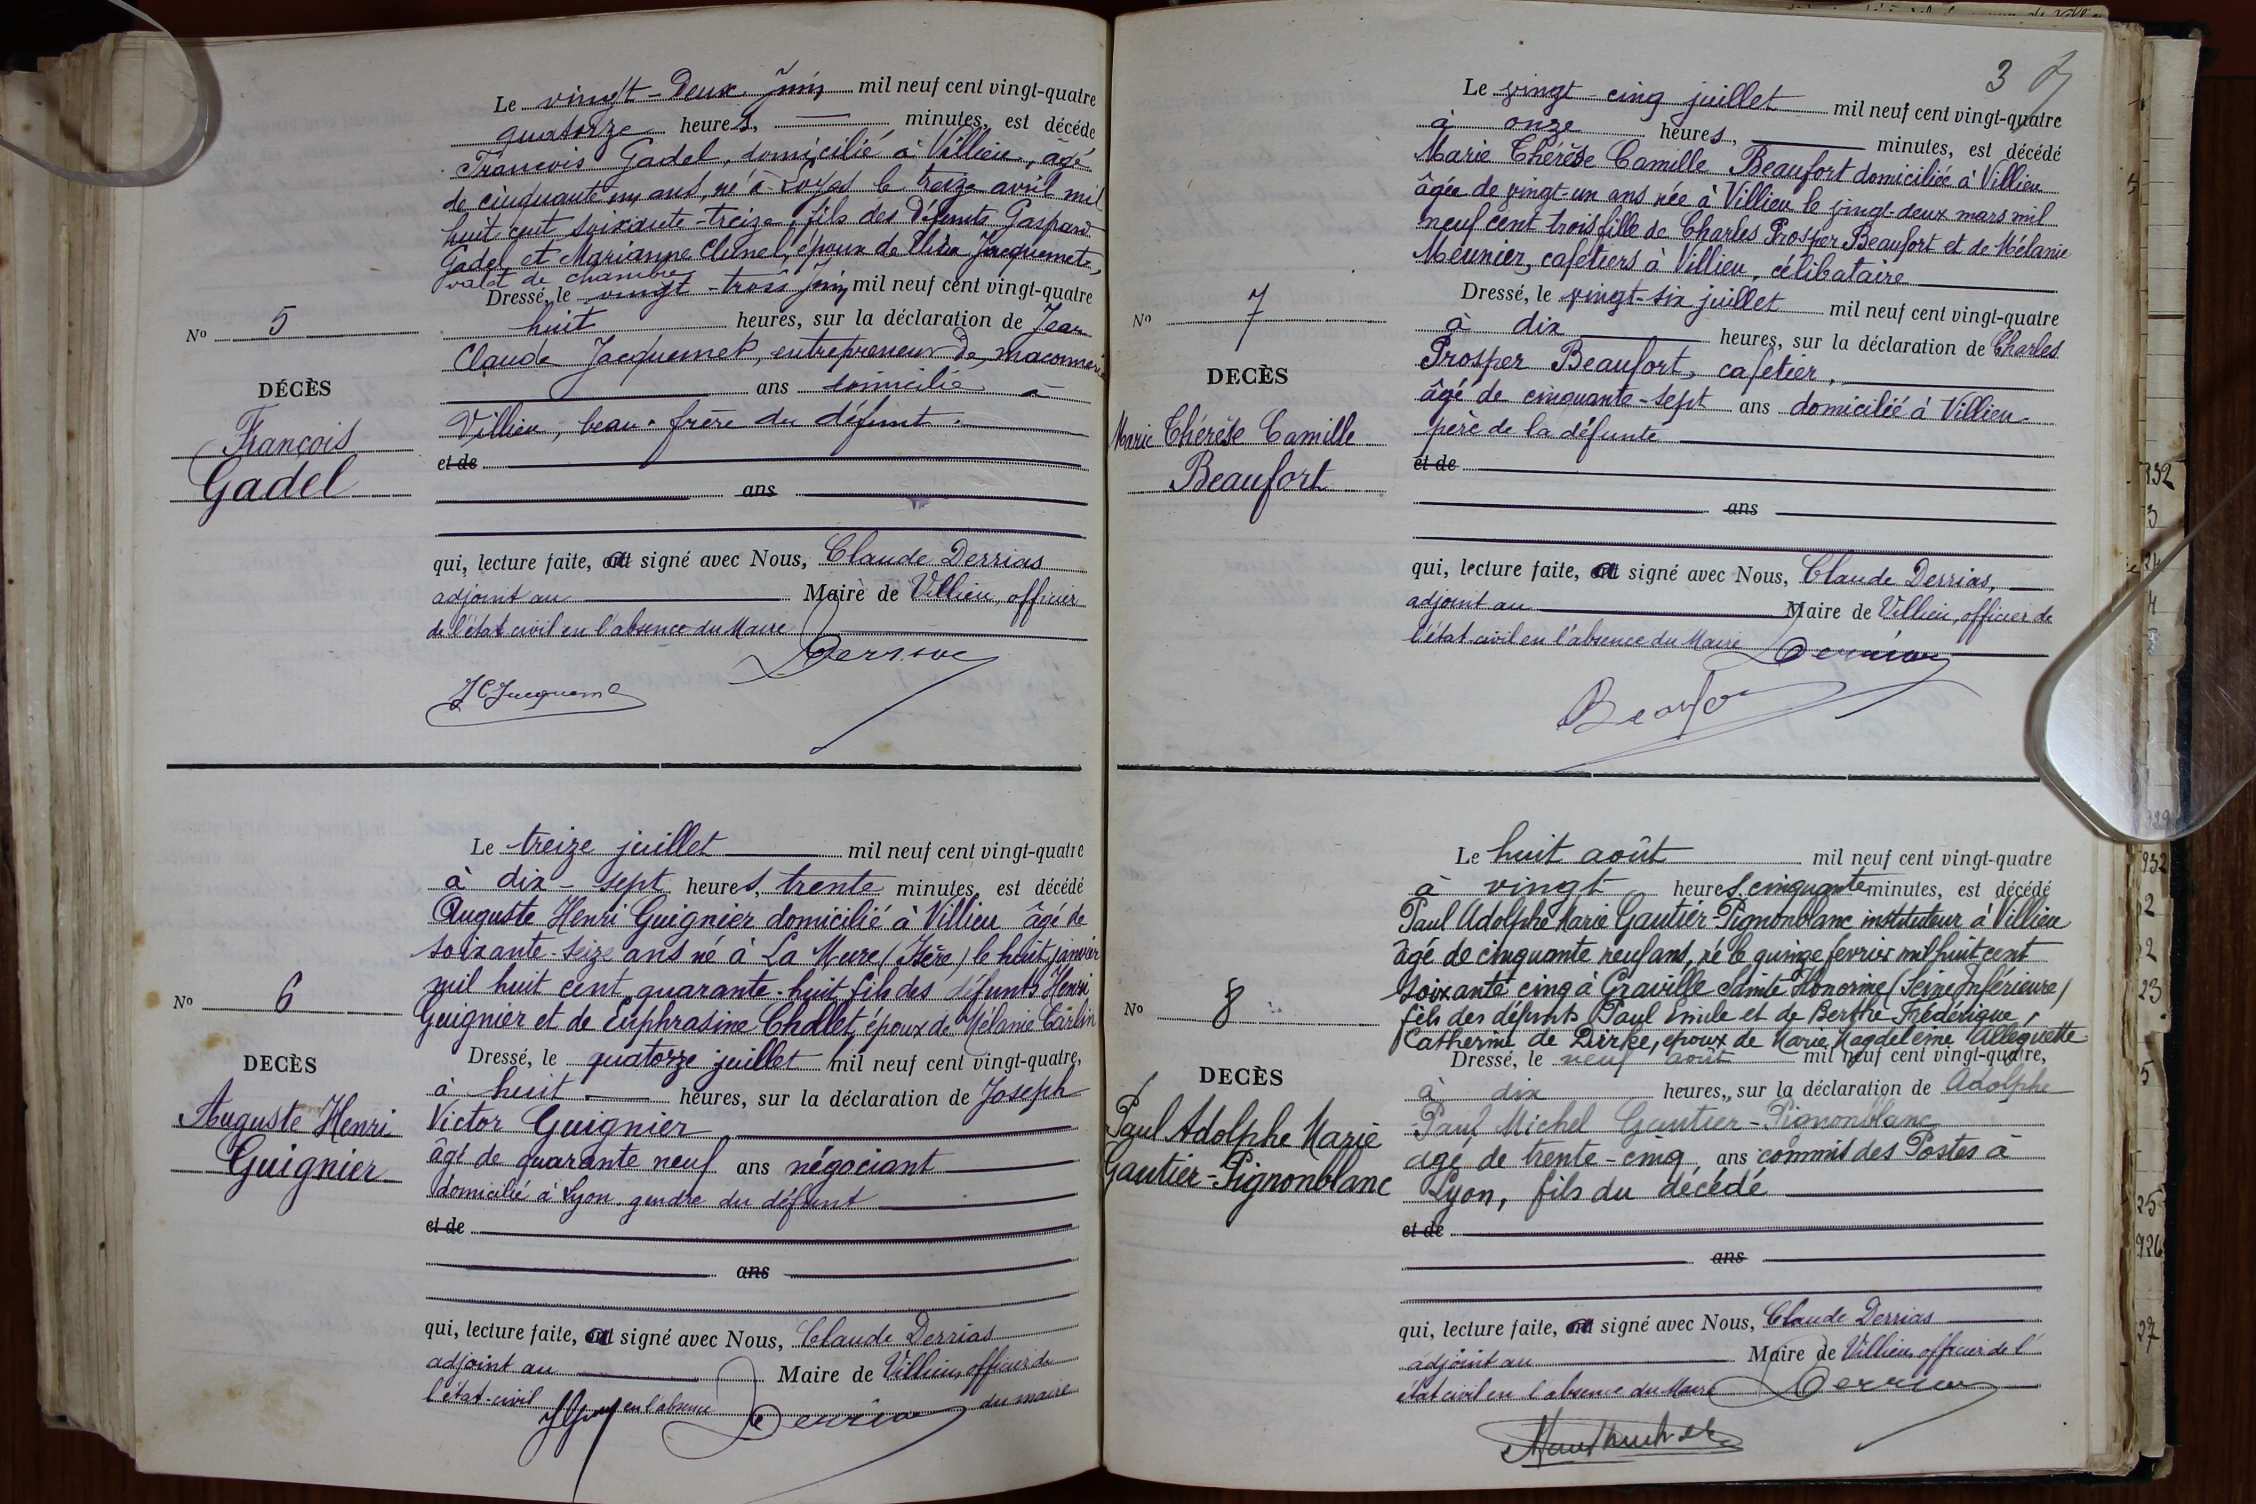 Le vingt-deux Juin mil neuf cent vingt-quatre
quatorze heures, — minutes, est décédé
François Gadel, domicilié à Villieu, âgé
de cinquante un ans, né à Loyes le treize avril mil
huit cent soixante-treize, fils des défunts Gaspard
Gadel et Marianne Clunel, époux de Jacquemet,
valet de chambre
Dressé, le vingt-trois Juin mil neuf cent vingt-quatre
huit heures, sur la déclaration de Jean
Claude Jacquemet, entrepreneur de maçonnerie
ans domicilié à
Villieu, beau-frère du défunt.
et de
ans
qui, lecture faite, a signé avec Nous, Claude Derrias
adjoint au Maire de Villieu, officier
de l'état civil en l'absence du Maire
Derrias
JC Jacquemet
No 5
DÉCÈS
François
Gadel
Le treize juillet mil neuf cent vingt-quatre
à dix-sept heures, trente minutes, est décédé
Auguste Henri Guignier domicilié à Villieu âgé de
soixante-seize ans né à La Mure (Isère) le huit janvier
mil huit cent quarante-huit, fils des défunts Henri
Guignier et de Euphrasine Chollet, époux de Mélanie Carlin
Dressé, le quatorze juillet mil neuf cent vingt-quatre,
à huit heures, sur la déclaration de Joseph
Victor Guignier
âgé de quarante neuf ans négociant
domicilié à Lyon gendre du défunt
et de
ans
qui, lecture faite, a signé avec Nous, Claude Derrias
adjoint au Maire de Villieu, officier de
l'état-civil en l'absence du maire
Derrias
No 6
DECÈS
Auguste Henri
Guignier
3
Le vingt-cinq juillet mil neuf cent vingt-quatre
à onze heures, — minutes, est décédé
Marie Thérèse Camille Beaufort domiciliée à Villieu
âgée de vingt-un ans née à Villieu le vingt-deux mars mil
neuf cent trois fille de Charles Prosper Beaufort et de Mélanie
Meunier, cafetiers à Villieu, célibataire
Dressé, le vingt-six juillet mil neuf cent vingt-quatre
à dix heures, sur la déclaration de Charles
Prosper Beaufort, cafetier,
âgé de cinquante-sept ans domicilié à Villieu
père de la défunte
et de
ans
qui, lecture faite, a signé avec Nous, Claude Derrias,
adjoint au Maire de Villieu, officier de
l'état-civil en l'absence du Maire Derrias
Beaufor
No 7
DECÈS
Marie Thérèse Camille
Beaufort
Le huit août mil neuf cent vingt-quatre
à vingt heures, cinquante minutes, est décédé
Paul Adolphe Marie Gautier-Pignonblanc instituteur à Villieu
âgé de cinquante neuf ans, né le quinze février mil huit cent
soixante cinq à Graville Sainte Honorine (Seine Inférieure)
fils des défunts Paul Emile et de Berthe Frédérique,
Catherine de Dirke, époux de Marie Magdeleine Alléguette
Dressé, le neuf août mil neuf cent vingt-quatre,
à dix heures, sur la déclaration de Adolphe
Paul Michel Gautier-Pignonblanc
âgé de trente-cinq ans commis des Postes à
Lyon, fils du décédé
et de
ans
qui, lecture faite, a signé avec Nous, Claude Derrias
adjoint au Maire de Villieu officier de l'
état civil en l'absence du Maire Derrias
No 8
DECÈS
Paul Adolphe Marie
Gautier-Pignonblanc